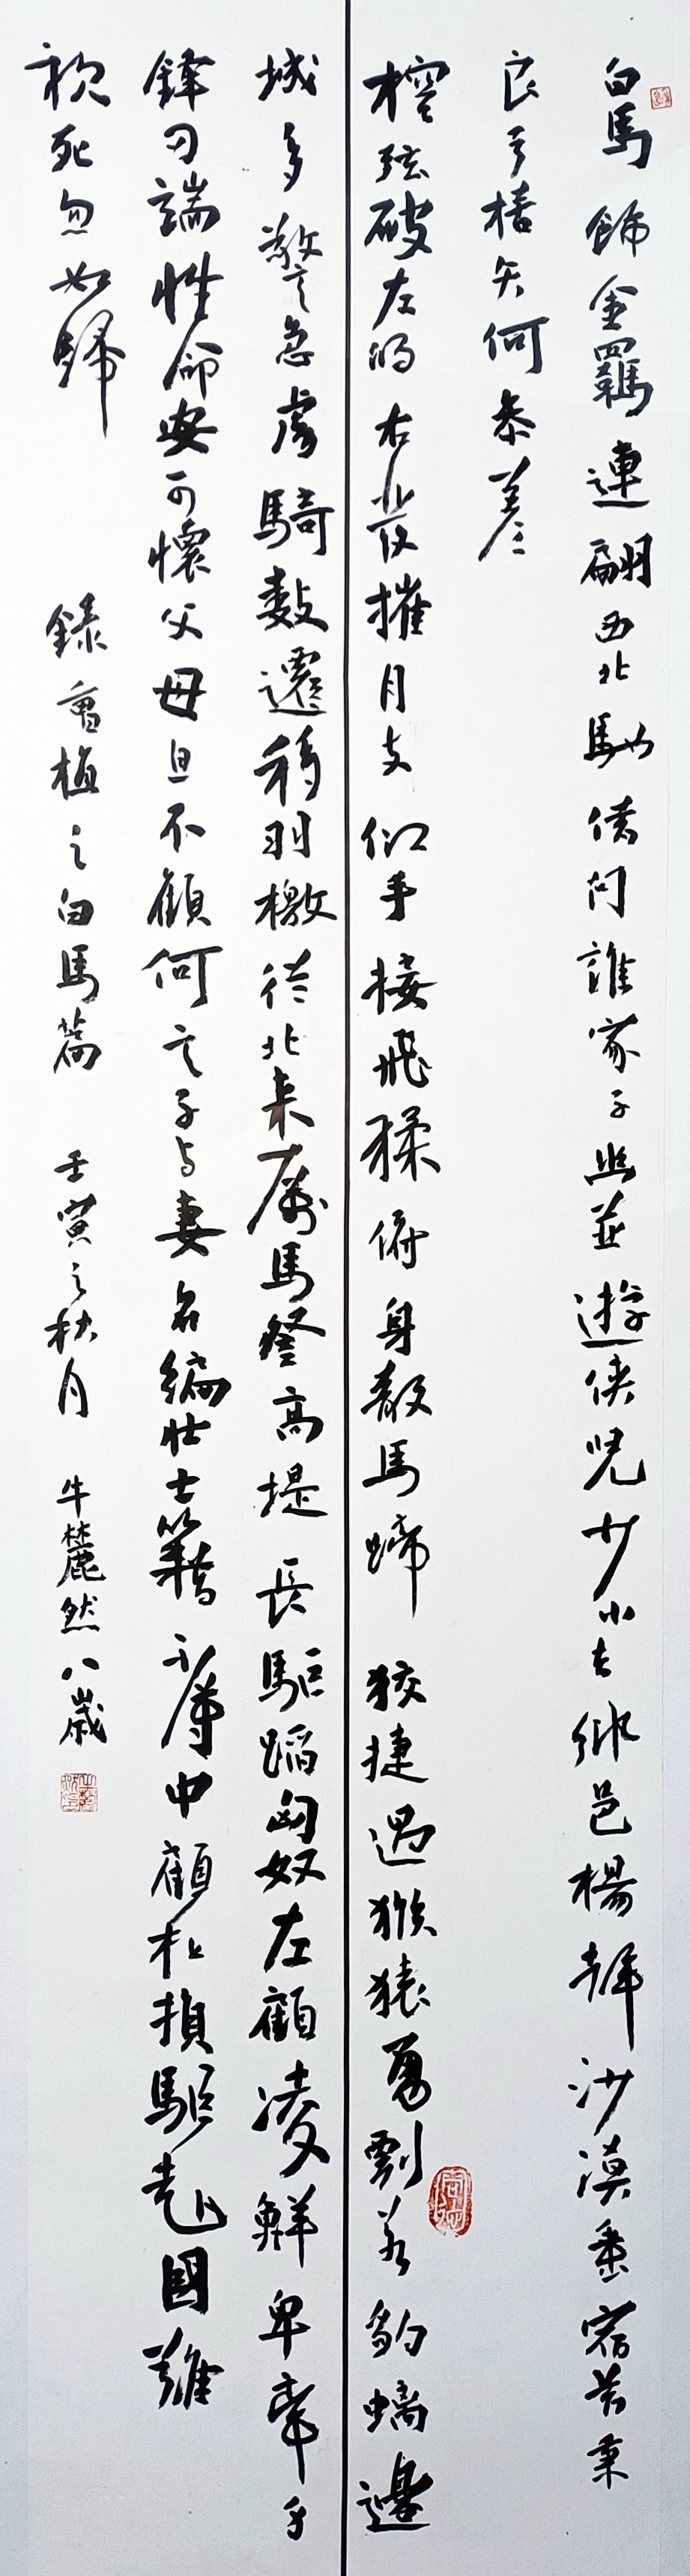 白馬飾金羈連翩西北馳借問誰家子幽並遊俠兒少小去鄉邑楊聲沙漠垂宿昔秉
良弓楛矢何參差
控弦破左的右發摧月支仰手接飛猱俯身散馬蹄狡捷過猴猿勇剽若豹螭邊
城多警急虜騎數遷移羽檄從北来厲馬登高堤長驅蹈匈奴左顧凌鮮卑棄身
鋒刃端性命安可懷父母且不顧何言子与妻名編壯士籍不得中顧私捐軀赴國難
視死忽如歸 錄曹植之白馬篇 壬寅之秋月 牛麓然八歲